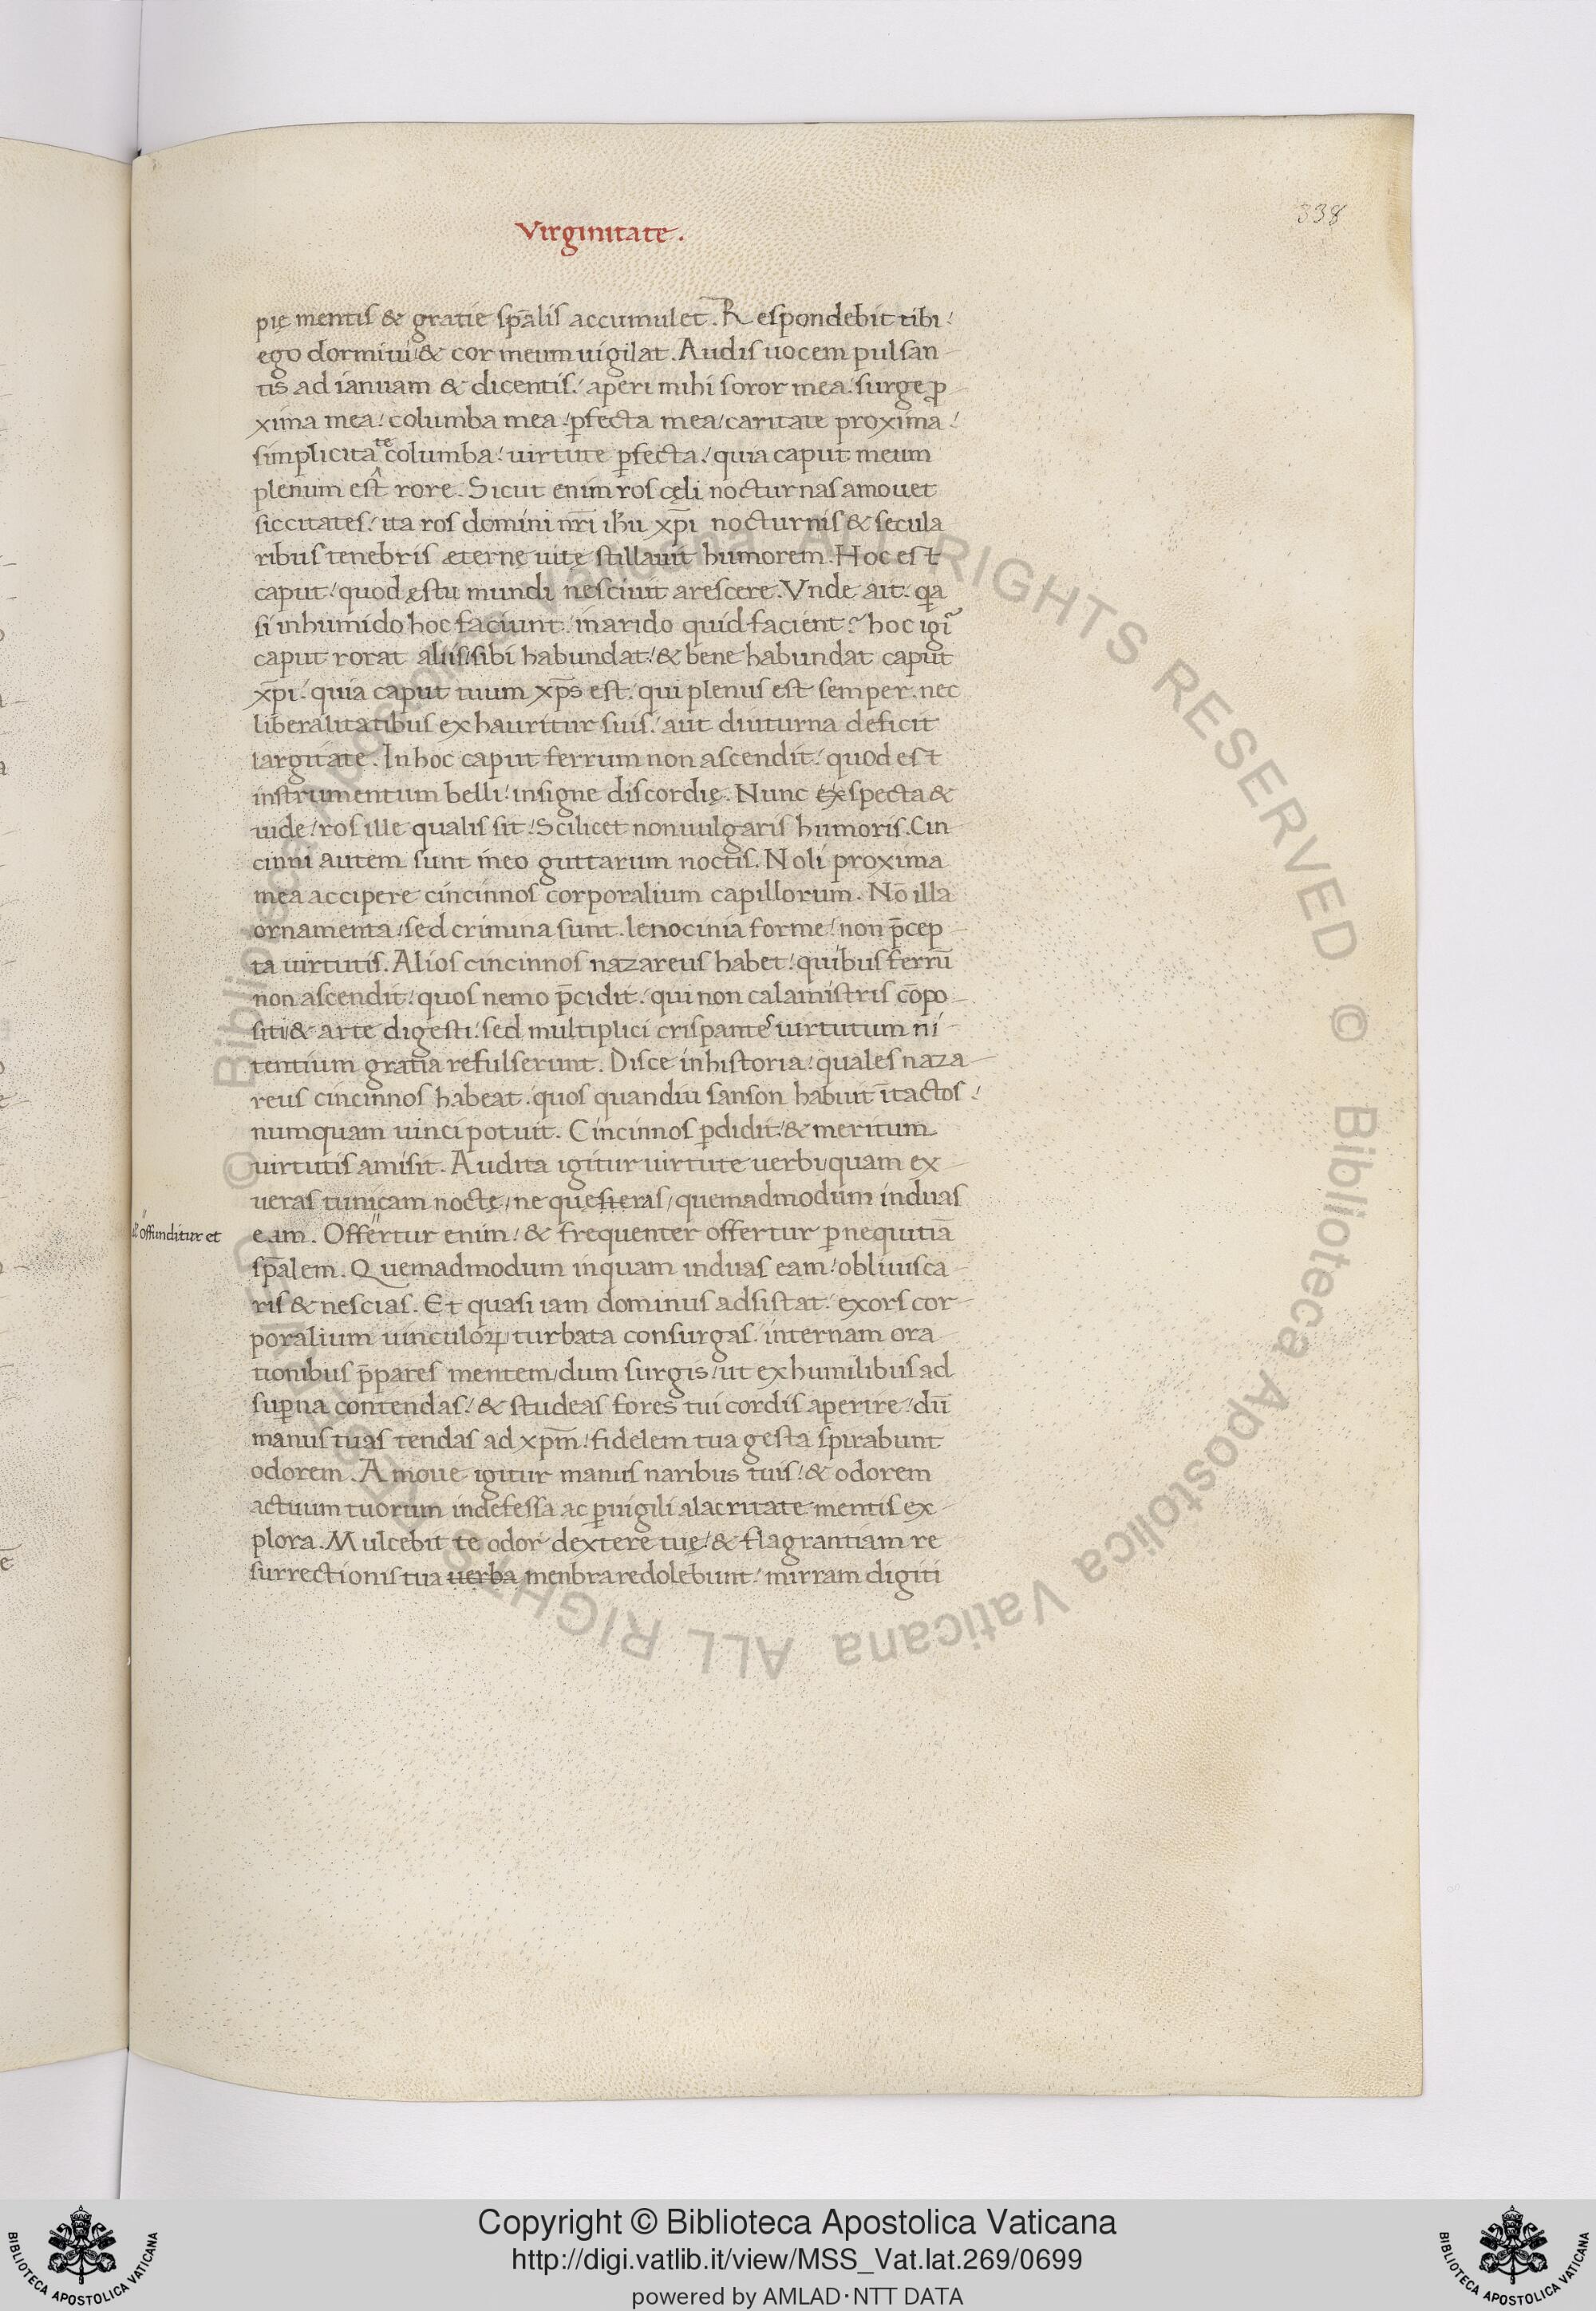 338
Virginitate.
pię mentis & gratie sp̄alis accumulet. Respondebit tibi:
ego dormiui & cor meum uigilat. Audis uocem pulsan-
tis ad ianuam & dicentis: aperi mihi soror mea: surge ꝓ-
xima mea: columba mea: ꝑfecta mea: caritate proxima:
simplicitate columba: uirtute ꝑfecta: quia caput meum
plenum est rore. Sicut enim ros cęli nocturnas amouet
siccitates: ita ros domini nr̄i ih̄u xp̄i nocturnis & secula
ribus tenebris æternę uitę stillauit humorem. Hoc est
caput: quod ęstu mundi nesciuit arescere. Vnde ait: qa
si inhumido hoc faciunt: inarido quid facient? hoc igi᷑
caput rorat aliis: sibi habundat: & bene habundat caput
xp̄i: quia caput tuum xp̄s est: qui plenus est semper. nec
liberalitatibus exhauritur suis: aut diuturna deficit
largitate. Inhoc caput ferrum non ascendit: quod est
instrumentum belli: insigne discordię. Nunc exspecta &
uide: ros ille qualis sit: Scilicet nonuulgaris humoris. Cin
cinni autem sunt ineo guttarum noctis. Noli proxima
mea accipere cincinnos corporalium capillorum. Nō illa
ornamenta: sed crimina sunt. lenocinia forme: non p̄cep-
ta uirtutis. Alios cincinnos nazareus habet: quibus ferrū
non ascendit: quos nemo p̄cidit: qui non calamistris cōpo-
siti & arte digesti: sed multiplici crispantes uirtutum ni-
tentium gratia refulserunt. Disce inhistoria: quales naza-
reus cincinnos habeat: quos quandiu sanson habuit ītactos:
numquam uinci potuit. Cincinnos ꝑdidit: & meritum
uirtutis amisit. Audita igitur uirtute uerbi quam ex-
ueras tunicam noctę: ne quesieras: quemadmodum induas
eam. Offertur enim: & frequenter offertur ꝑ nequitiā
ł offunditur et
sp̄alem. Quemadmodum inquam induas eam: obliuisca-
ris & nescias. Et quasi iam dominus adsistat: exors cor-
poralium uinculoꝝ: turbata consurgas: internam ora
tionibus p̄pares mentem: dum surgis: ut exhumilibus ad
suꝑna contendas: & studeas fores tui cordis aperire: dū
manus tuas tendas ad xp̄m: fidelem tua gesta spirabunt
odorem. Amoue igitur manus naribus tuis: & odorem
actuum tuorum indefessa ac ꝑuigili alacritate mentis ex-
plora. Mulcebit te odor dextere tuę: & flagrantiam re
surrectionis tua uerba menbra redolebunt: mirram digiti
© Biblioteca Apostolica Vaticana ALL RIGHTS RESERVED
© Biblioteca Apostolica Vaticana ALL RIGHTS RESERVED
Copyright © Biblioteca Apostolica Vaticana
http://digi.vatlib.it/view/MSS_Vat.lat.269/0699
powered by AMLAD·NTT DATA
BIBLIOTECA APOSTOLICA VATICANA
BIBLIOTECA APOSTOLICA VATICANA